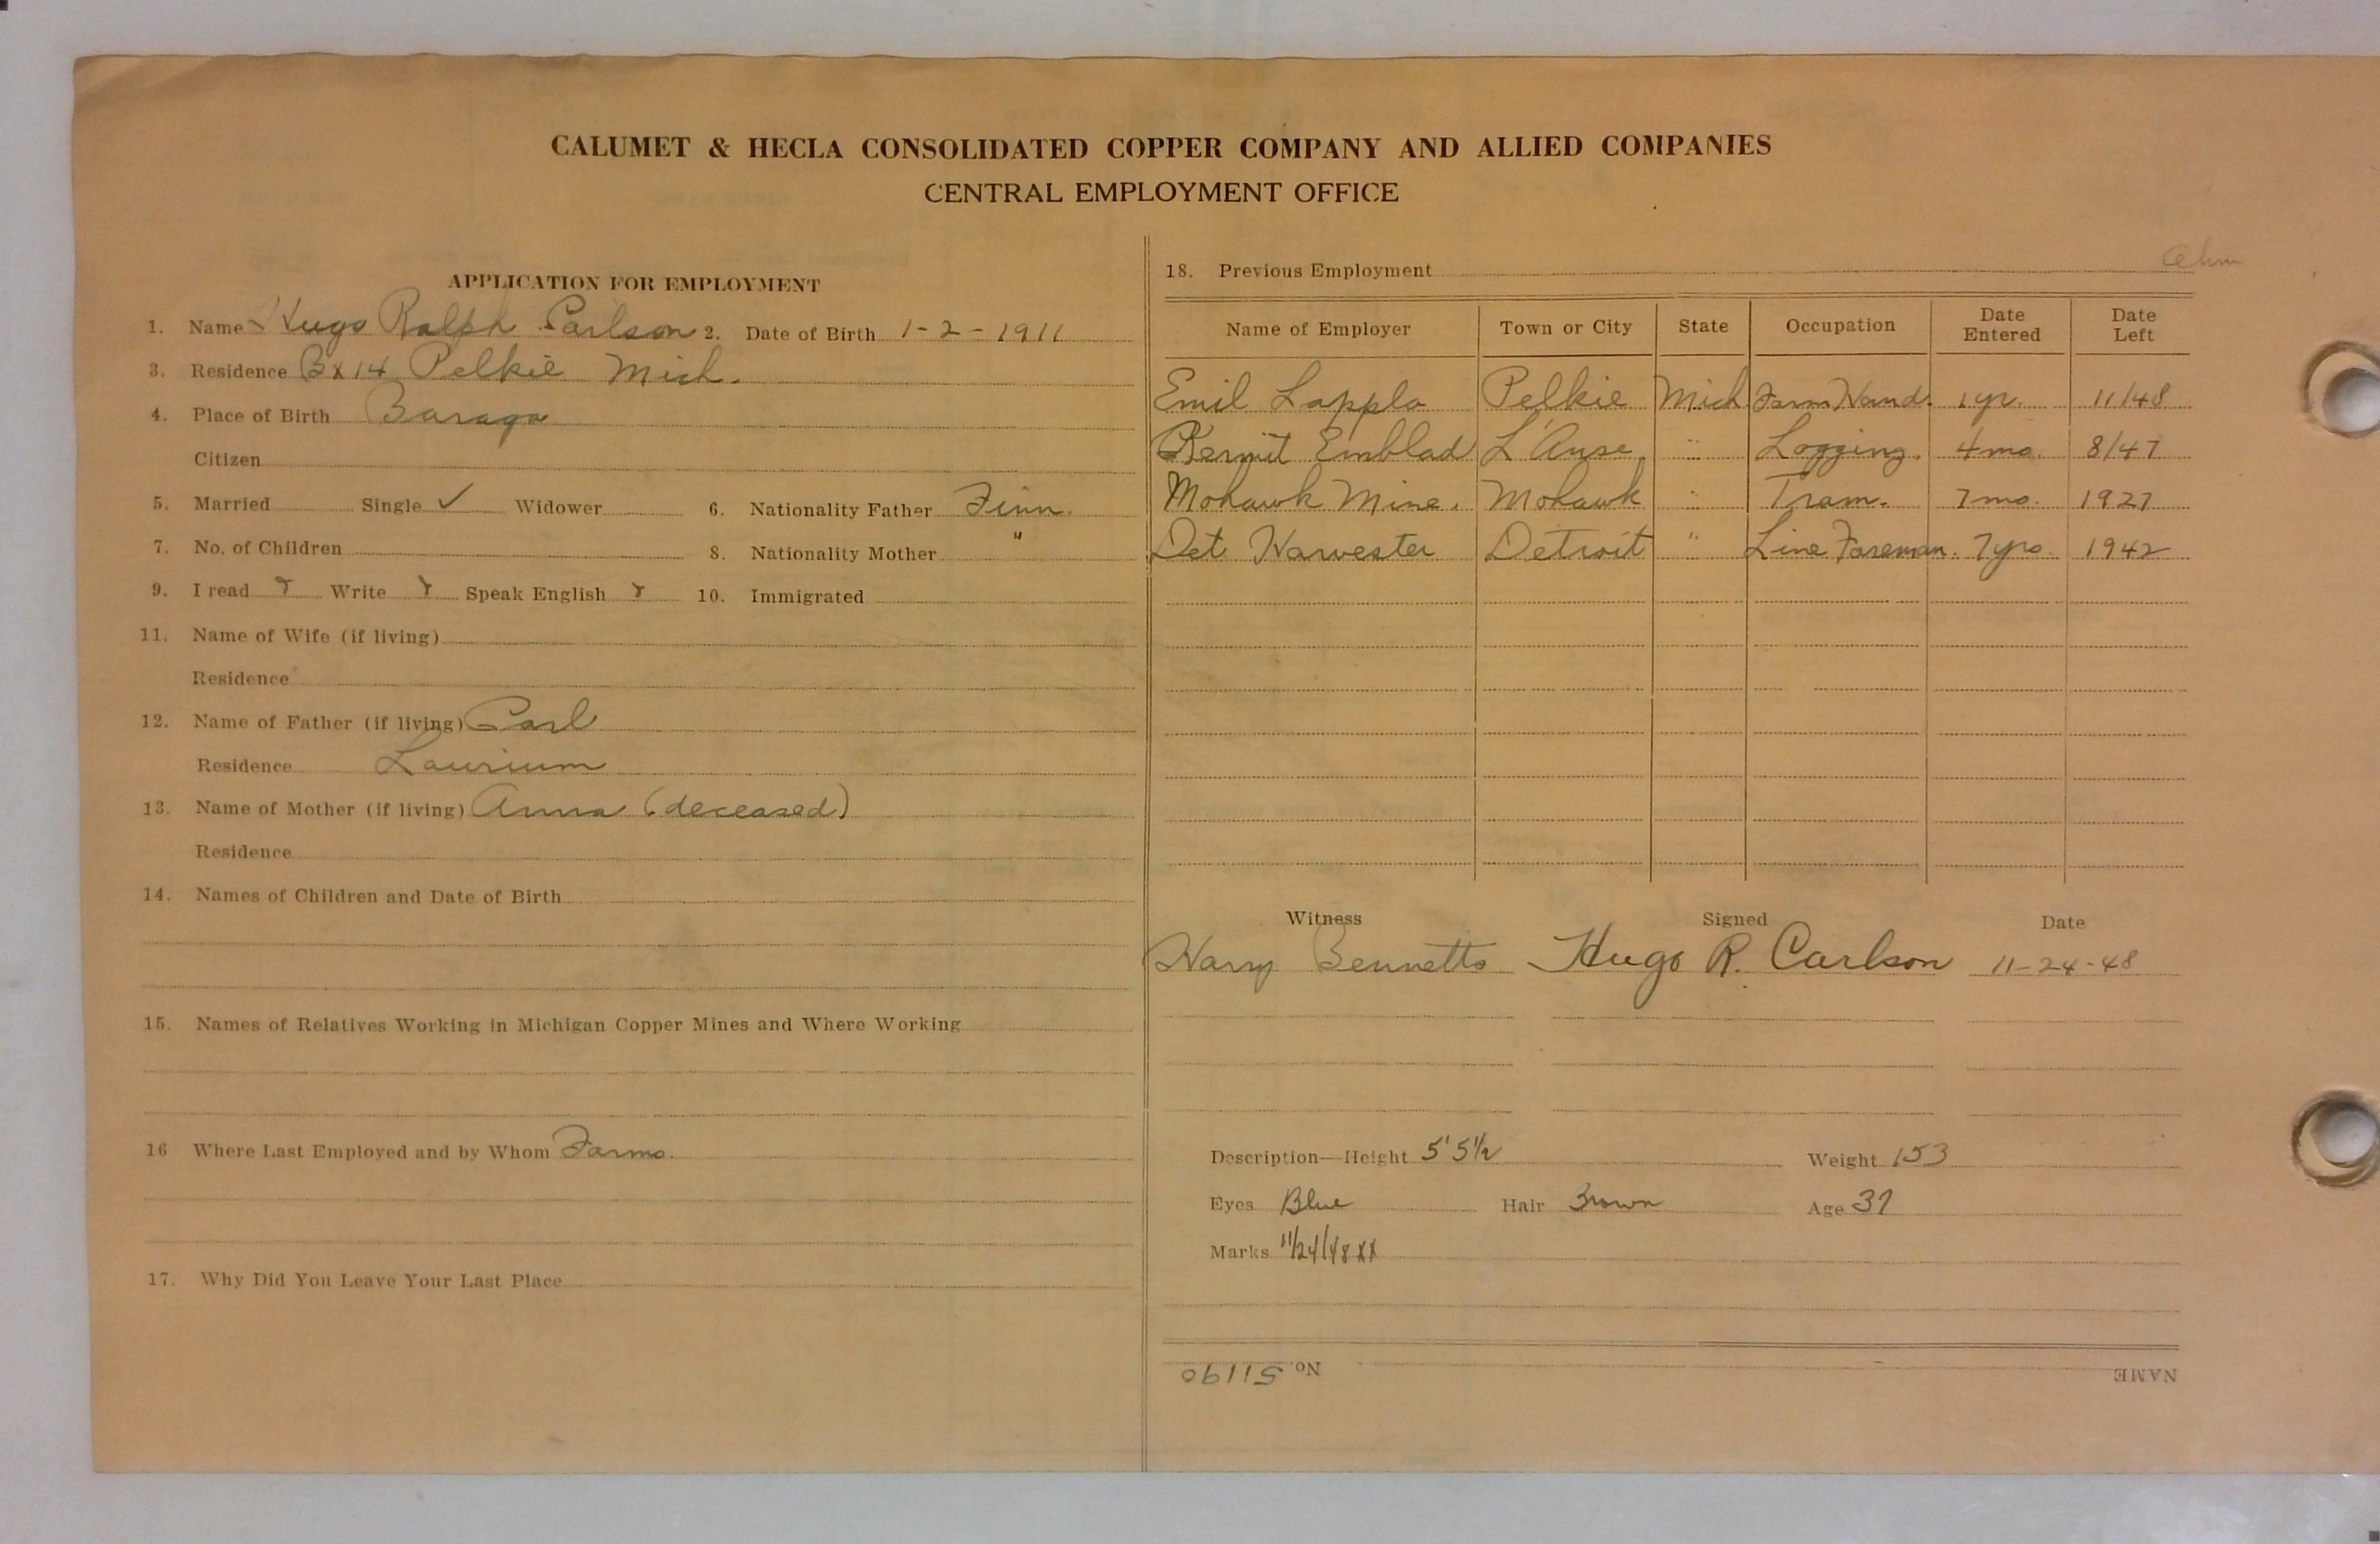 CALUMET & HECLA CONSOLIDATED COPPER COMPANY AND ALLIED COMPANIES
CENTRAL EMPLOYMENT OFFICE
APPLICATION FOR EMPLOYMENT
1. Name Hugo Ralph Carlson 2. Date of Birth 1-2-1911
3. Residence Bx 14 Pelkie Mich.
4. Place of Birth Baraga
Citizen
5. Married Single ✓ Widower 6. Nationality Father Finn.
7. No. of Children 8. Nationality Mother "
9. I read Write Speak English 10. Immigrated
11. Name of Wife (if living)
Residence
12. Name of Father (if living) Carl
Residence Laurium
13. Name of Mother (if living) Anna (deceased)
Residence
14. Names of Children and Date of Birth
15. Names of Relatives Working in Michigan Copper Mines and Where Working
16 Where Last Employed and by Whom Farms.
17. Why Did You Leave Your Last Place
18. Previous Employment
Name of Employer Town or City State Occupation Date Entered Date Left
Emil Lappla Pelkie Mich Farm Hand. 1 yr. 11/48
Kermit Emblad L'Anse. " Logging. 4 mo. 8/47
Mohawk Mine. Mohawk " Tram. 7 mo. 1927
Det Harvester Detroit " Line Foreman. 7 yrs. 1942
Witness Signed Date
Harry Bennetts Hugo R. Carlson 11-24-48
Description—Height 5' 5 1/2 Weight 153
Eyes Blue Hair Brown Age 37
Marks 11/24/48 XX
No. 51190 NAME